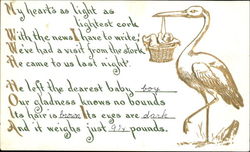 My heart's as light as
lightest cork
With the news I have to write,
We've had a visit from the stork
He came to us last night.
He left the dearest baby boy
Our gladness knows no bounds
Its hair is brown Its eyes are dark
And it weighs just 9½ pounds.